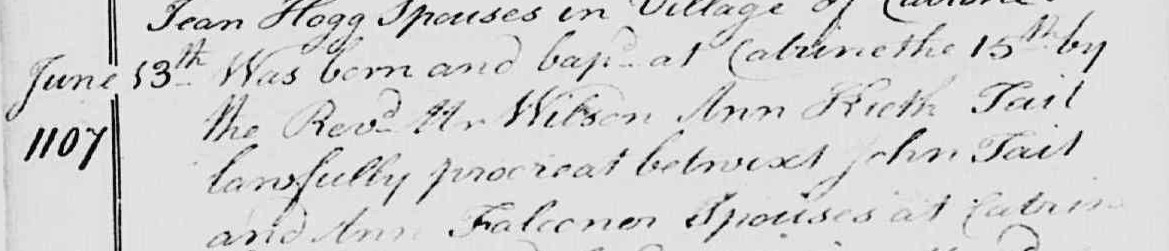 Jean Hogg Spouses in Village of Catrine.
June 13th Was born and bapd. at Catrine the 15th by
1107 the Revd. Mr Wilson Ann Kieth Tait
lawfully procreat betwixt John Tait
and Ann Falconer Spouses at Catrin